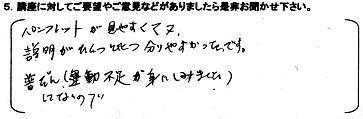 5. 講座に対してご要望やご意見などがありましたら是非お聞かせ下さい。
パンフレットが見やすくてよ、
説明がひとつひとつ分りやすかったです。
普だん(運動不足が身にしみました)
してないので